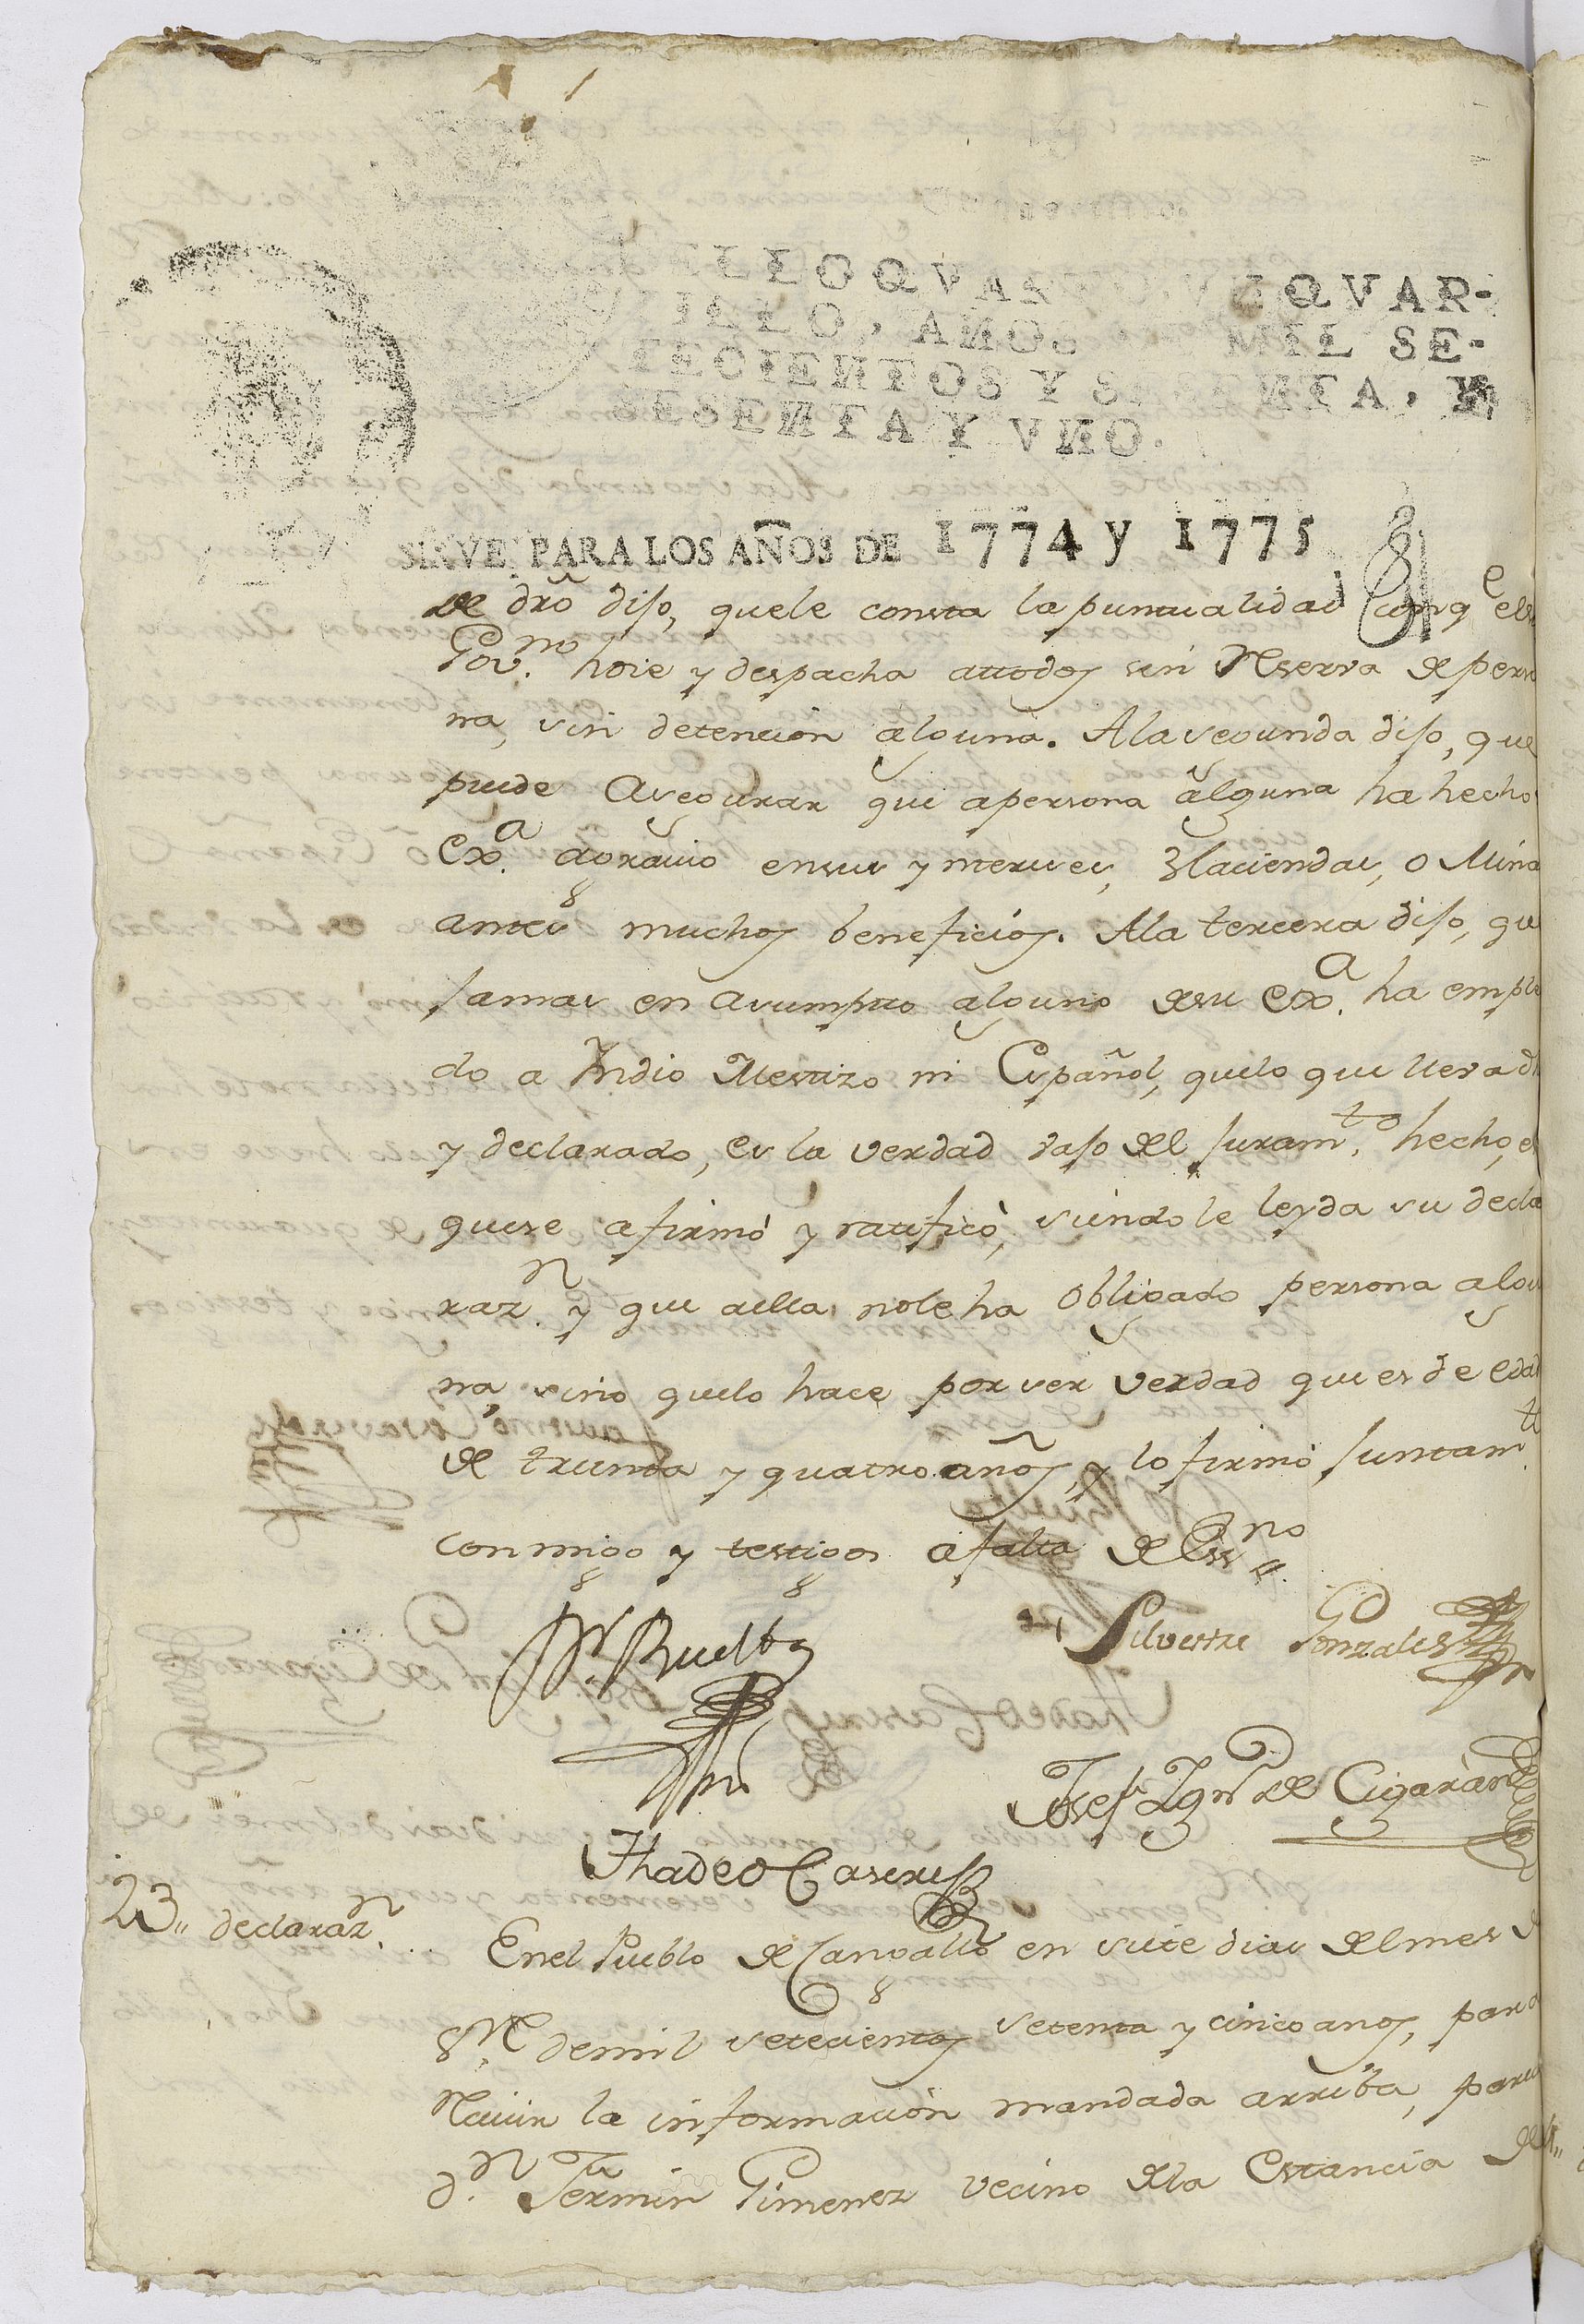 SELLO QVARTO, VN QVAR-
TILLO, AÑOS DE MIL SE-
TECIENTOS Y SESENTA, Y
SESENTA Y VNO.
SIRVE PARA LOS AÑOS DE 1774 y 1775
de dr̃o dijo, quele consta la puntualidad conq.e el s
Gov.no hoie y despacha attodos sin Reserva de perso
na, sin detencion alguna. Ala segunda dijo, que
puede Asegurar que apersona alguna ha hecho
Ex.a agravio ensus ynteruces, Haciendas, o Mina
antes muchos beneficios. Ala tercera dijo, que
jamas en asumptto alguno desu Ex.a ha emple
do a Yndio Mestizo ni Español, quelo que lleva dh
y declarado, es la verdad vajo del juram.to hecho, en
quese afirmó y ratificó, siendole leyda su decla
raz.n y que aella nole ha obligado persona algu
na, sino quelo hace por ser verdad que es de edad
de treinta y quatro años, y lo firmó juntam.te
conmigo y testigos afalta de Ess.no
Ruelta
Silvestre Gonzales
Josef Ygn.o de Cigaràn
Thadeo Caseres
23,, declaraz.n ...
Enel Pueblo de Cangallo en siete dias del mes d
8.re demil setecientos setenta y cinco anos, para
Recivir la informacion mandada arriba, parec
d.n Fermin Gimenez vecino dela Estancia de